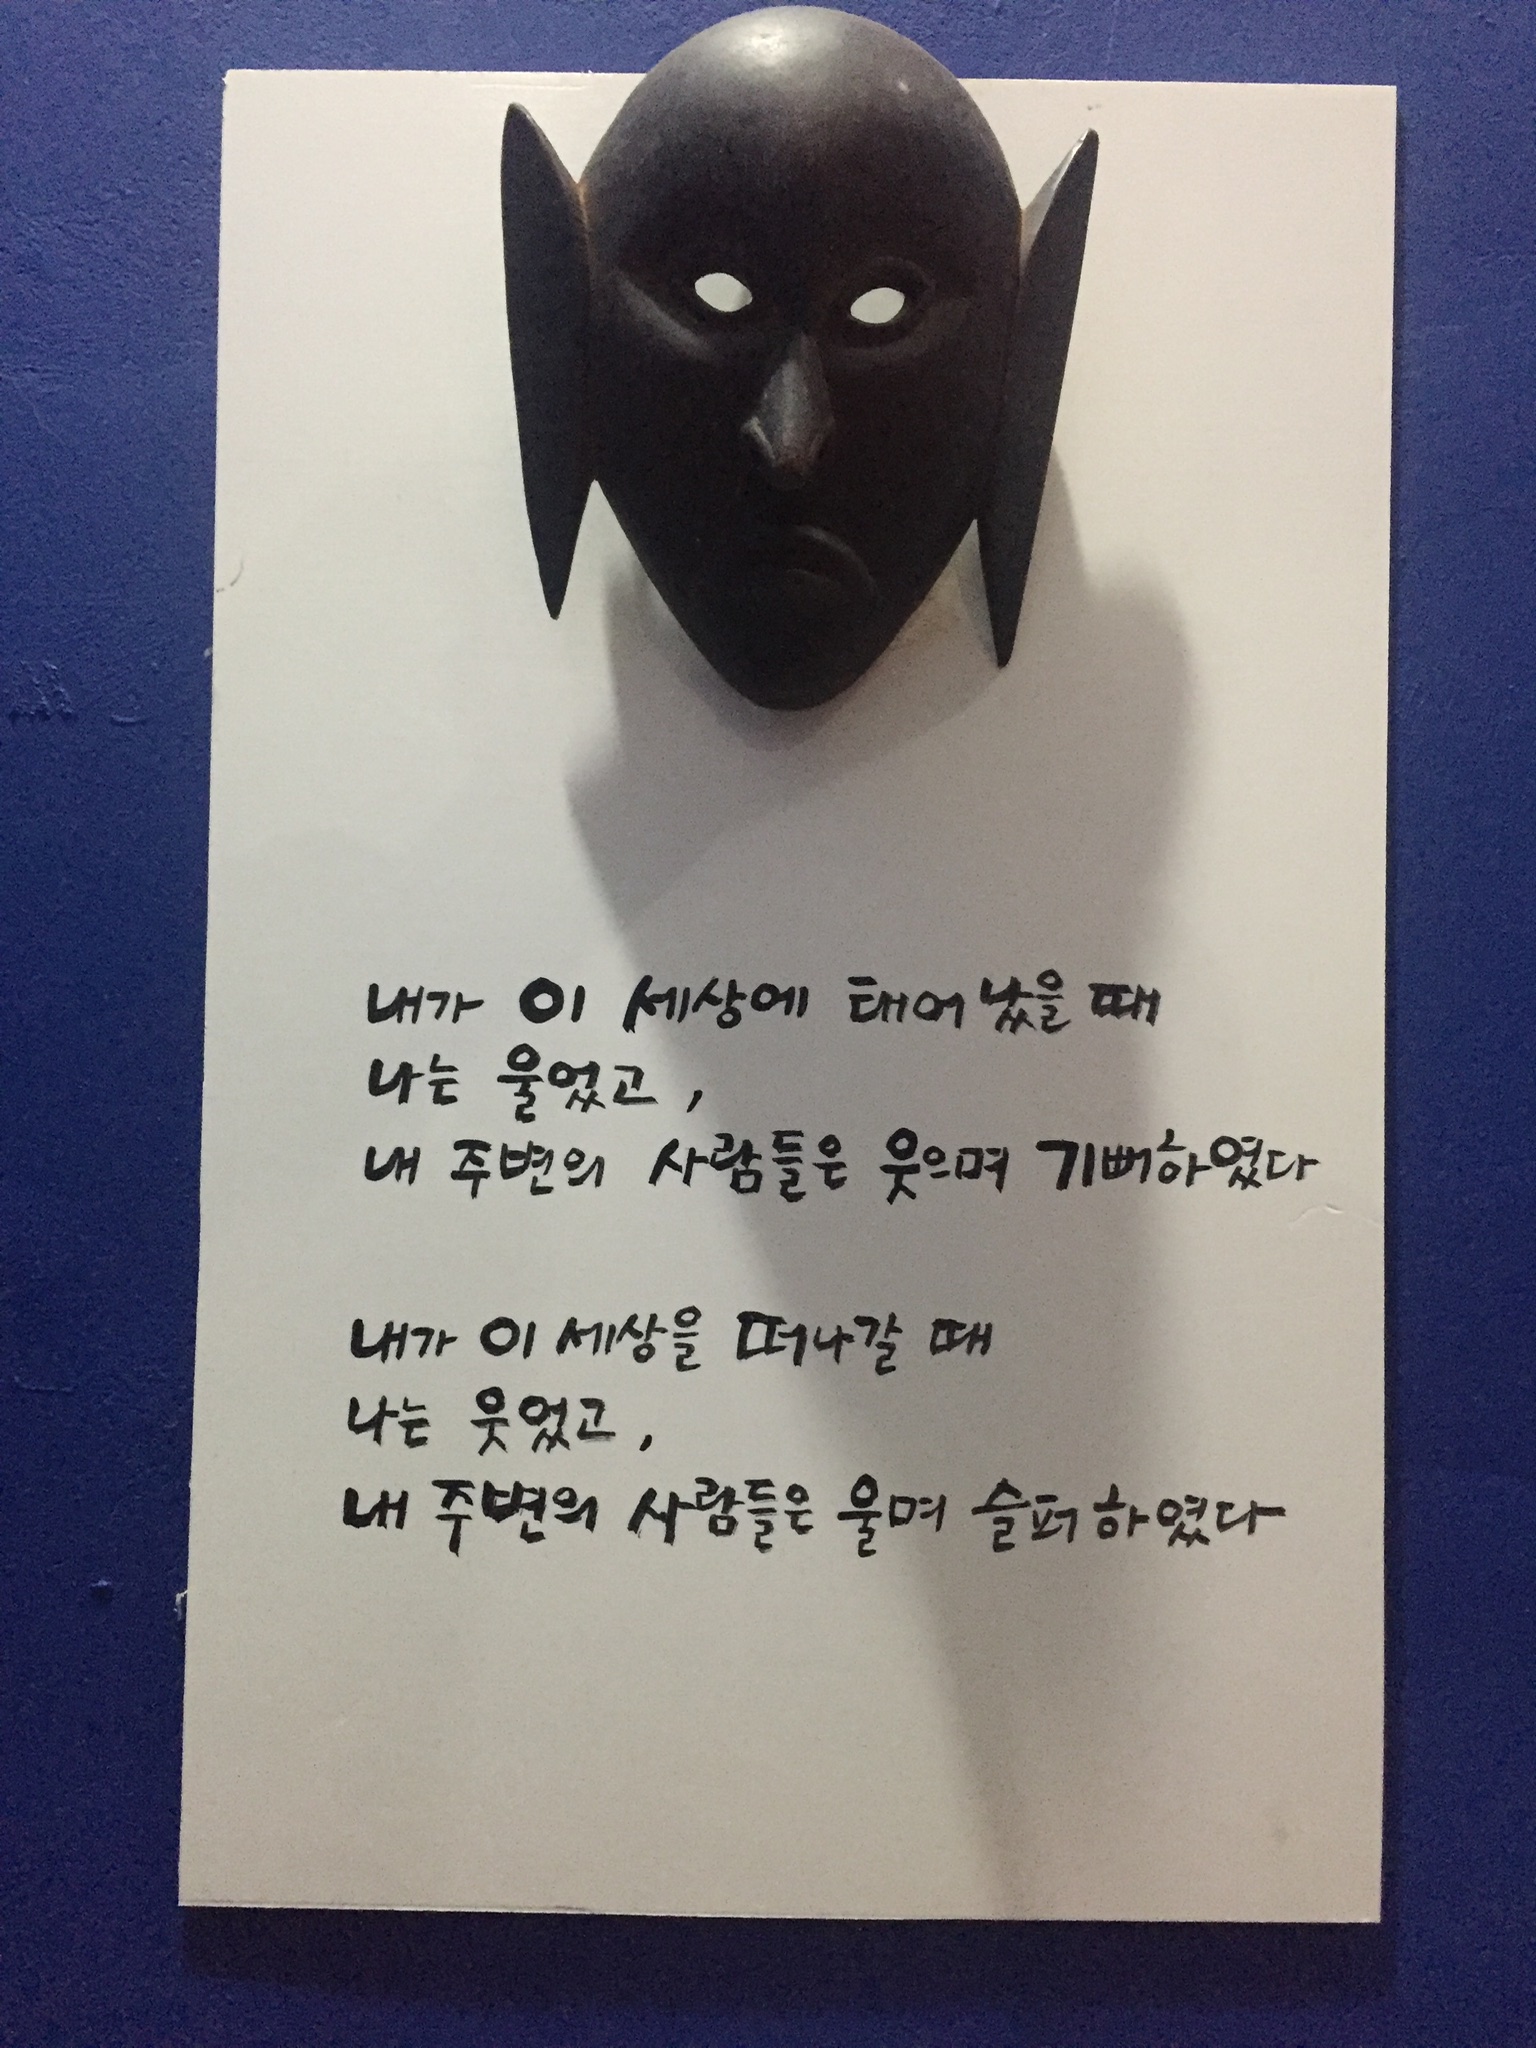 내가 이 세상에 태어났을 때
나는 울었고,
내 주변의 사람들은 웃으며 기뻐하였다
내가 이 세상을 떠나갈 때
나는 웃었고,
내 주변의 사람들은 울며 슬퍼하였다